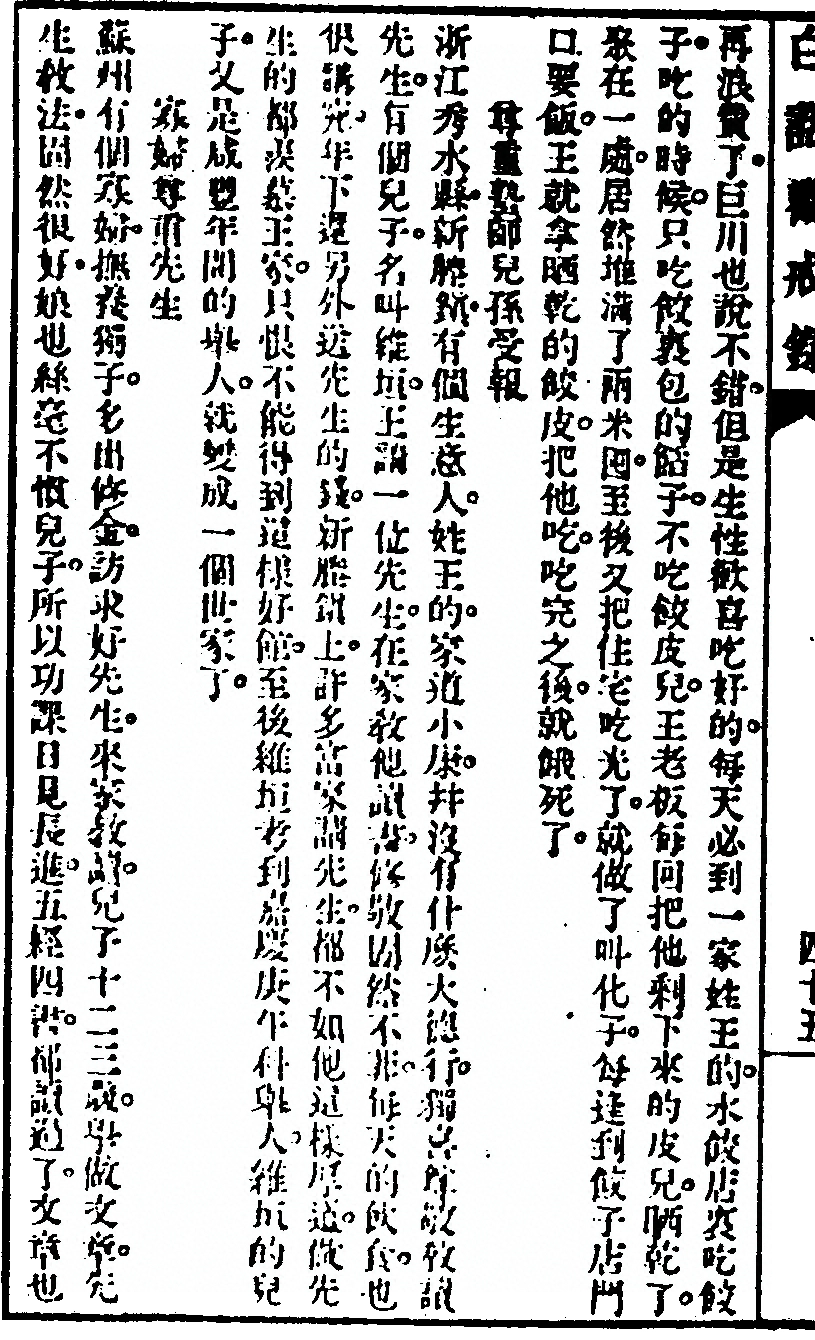 白話勸戒錄
四十五
再浪費了。巨川也說不錯。但是生性歡喜吃好的。每天必到一家姓王的。水餃店裏吃餃
子。吃的時候。只吃餃裏包的餡子。不吃餃皮兒。王老板每回把他剩下來的皮兒。晒乾了。
聚在一處。居然堆滿了兩米囤。至後又把住宅吃光了。就做了叫化子。每逢到餃子店門
口要飯。王就拿晒乾的餃皮。把他吃。吃完之後。就餓死了。
尊重塾師兒孫受報
浙江秀水縣。新塍鎮。有個生意人。姓王的。家道小康。并沒有什麼大德行。獨喜尊敬教讀
先生。有個兒子。名叫維垣。王請一位先生。在家教他讀書。修敬固然不菲。每天的飲食。也
很講究。年下還另外送先生的錢。新塍鎮上。許多富家請先生。都不如他這樣厚道。做先
生的都羨慕王家。只恨不能得到這樣好館。至後維垣考到嘉慶庚午科舉人。維垣的兒
子。又是咸豐年間的舉人。就變成一個世家了。
寡婦尊重先生
蘇州有個寡婦。撫養獨子。多出修金。訪求好先生。來家教讀。兒子十二三歲。學做文章。先
生教法。固然很好。娘也絲毫不慣兒子。所以功課日見長進。五經四書。都讀過了。文章也